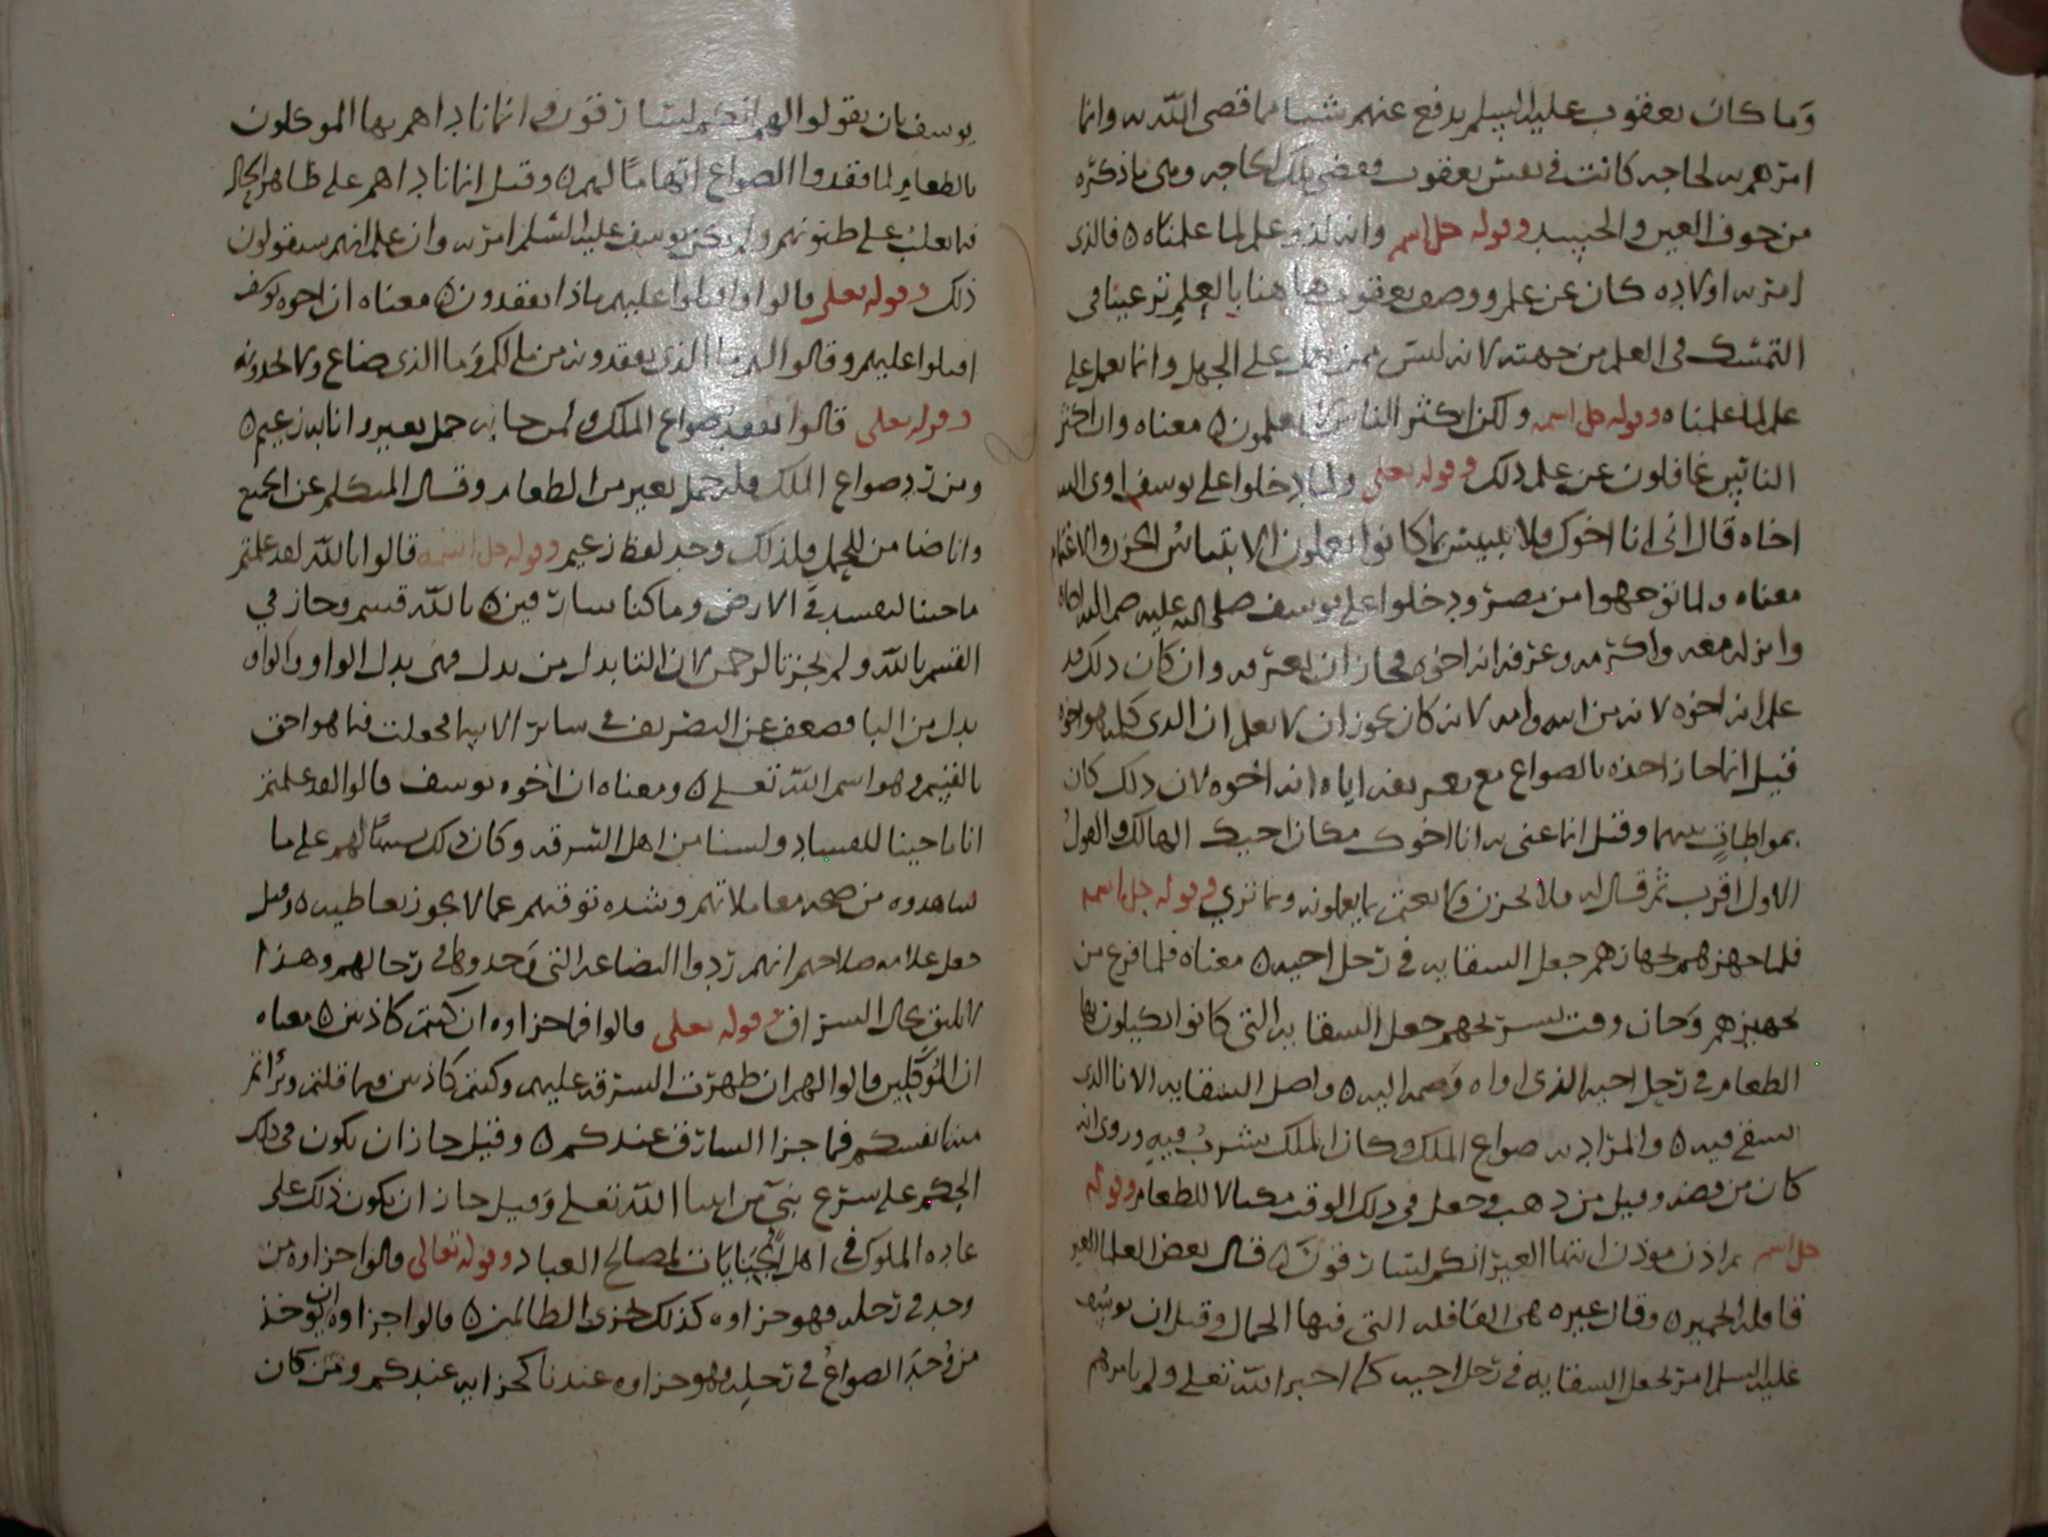 وما كان يعقوب عليه السلم يدفع عنهم شيا مما قضى الله به وانما
امرهم به لحاجه كانت في نفس يعقوب فقضى تلك الحاجه وهي ما ذكره
من خوف العين والحسد وقوله جل اسمه وانه لذو علم لما علمناه ٥ فالذي
امر به اولاده كان عن علم ووصف يعقوب هاهنا بالعلم ترغيبا في
التمسك في العلم من جهته لانه ليس ممن يعمل على الجهل وانما يعمل على
علم لما علمناه وقوله جل اسمه ولكن اكثر الناس لا يعلمون ٥ معناه وان اكثر
الناس غافلون عن علم ذلك وقوله تعلى ولما دخلوا على يوسف اوى اليه
اخاه قال اني انا اخوك فلا تبتئس بما كانوا يعملون الابتياس الحزن والاغتمام
معناه ولما توجهوا من مصر ودخلوا على يوسف صلى الله عليه ضم اليه اخاه
وانزله معه واكرمه وعرفه انه اخوه فجاز ان يعترف به وان كان ذلك قد
علم انه اخوه لانه من ابيه وامه لانه كان يجوز ان لا يعلم ان الذي كلمه هو اخوه
قيل انما جاز اخذه بالصواع مع تعريفه اياه انه اخوه لان ذلك كان
بمواطاة بينهما وقيل انما عنى به انا اخوك مكان اخيك الهالك والقول
الاول اقرب ثم قال له فلا تحزن ولا تغتم بما يعملونه وبما ترى وقوله جل اسمه
فلما جهزهم بجهازهم جعل السقايه في رحل اخيه ٥ معناه فلما فرغ من
تجهيزهم وحان وقت تسريحهم جعل السقايه التي كانوا يكيلون بها
الطعام في رحل اخيه الذي اواه وضمه اليه ٥ واصل السقايه الانا الذي
يسقى فيه ٥ والمراد به صواع الملك وكان الملك يشرب فيه وروي انه
كان من فضه وقيل من ذهب وجعل في ذلك الوقت مكيالا للطعام وقوله
جل اسمه ثم اذن موذن ايتها العير انكم لسارقون ٥ قال بعض العلما العير
قافله الحمير ٥ وقال غيره هي القافله التي فيها الجمال وقيل ان يوسف
عليه السلم امر بجعل السقايه في رحل اخيه كما اخبر الله تعلى ولم يامرهم
يوسف بان يقولوا لهم انكم لسارقون وانما ناداهم بها الموكلون
بالطعام لما فقدوا الصواع اتهاما لهم ٥ وقيل انما ناداهم على ظاهر الحال
فيما يغلب على ظنونهم ولم يكن يوسف عليه السلم امر به وان علم انهم سيقولون
ذلك وقوله تعلى قالوا واقبلوا عليهم ماذا تفقدون ٥ معناه ان اخوه يوسف
اقبلوا عليهم وقالوا لهم ما الذي تفقدونه من مالكم وما الذي ضاع ولا تجدونه
وقوله تعلى قالوا نفقد صواع الملك ولمن جا به حمل بعير وانا به زعيم ٥
ومن رد صواع الملك فله حمل بعير من الطعام وقال المتكلم عن الجميع
وانا ضامن للحمل فلذلك وحد لفظ زعيم وقوله جل اسمه قالوا تالله لقد علمتم
ما جينا لنفسد في الارض وما كنا سارقين ٥ تالله قسم وجاز في
القسم بالله ولم يجز تالرحمن لان التا بدل من بدل فهي بدل الواو والواو
بدل من البا فضعف عن التصريف في ساير الاسما فجعلت فيما هو احق
بالقسم وهو اسم الله تعلى ٥ ومعناه ان اخوه يوسف قالوا لقد علمتم
انا ما جينا للفساد ولسنا من اهل السرقه وكان ذلك بينا لهم على ما
شاهدوه من صحه معاملاتهم وشده توقيهم عما لا يجوز تعاطيه ٥ وقيل
جعل علامه صلاحهم انهم ردوا البضاعه التي وجدوها في رحالهم وهذا
لا يليق بحال السراق وقوله تعلى قالوا فما جزاوه ان كنتم كاذبين ٥ معناه
ان الموكلين قالوا لهم ان ظهرت السرقه عليهم وكنتم كاذبين فيما قلتم وبرأتم
منه انفسكم فما جزا السارق عندكم ٥ وقيل جاز ان يكون في ذلك
الحكم على شرع نبي من انبيا الله تعلى وقيل جاز ان يكون ذلك على
عاده الملوك في اهل الجنايات لمصالح العباد وقوله تعالى قالوا جزاوه من
وجد في رحله فهو جزاوه كذلك نجزي الظالمين ٥ قالوا جزاوه ان يوخذ
من وجد الصواع في رحله وهو جزاوه عندنا كجزايه عندكم ومن كان